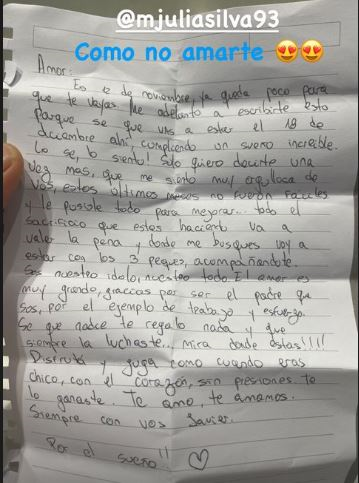 @mjuliasilva93
Como no amarte 😍😍
Amor:
Es 12 de noviembre, ya queda poco para
que te vayas. Me adelanto a escribirte esto
porque se que vas a estar el 18 de
diciembre ahí, cumpliendo un sueño increíble.
Lo se, lo siento! Solo quiero decirte una
vez mas, que me siento muy orgullosa de
vos, estos últimos meses no fueron fáciles
y le pusiste todo para mejorar... todo el
sacrificio que estas haciendo va a
valer la pena y donde me busques voy a
estar con los 3 peques, acompañándote.
Sos nuestro idolo, nuestro todo. El amor es
muy grande, graccias por ser el padre que
sos, por el ejemplo de trabajo y esfuerzo.
Se que nadie te regalo nada y que
siempre la luchaste... Mira donde estas!!!!!
Disfrutá y juga como cuando eras
chico, con el corazón, sin presiones. Te
lo ganaste. Te amo, te amamos.
Siempre con vos Javier.
Por el sueño!! ♡